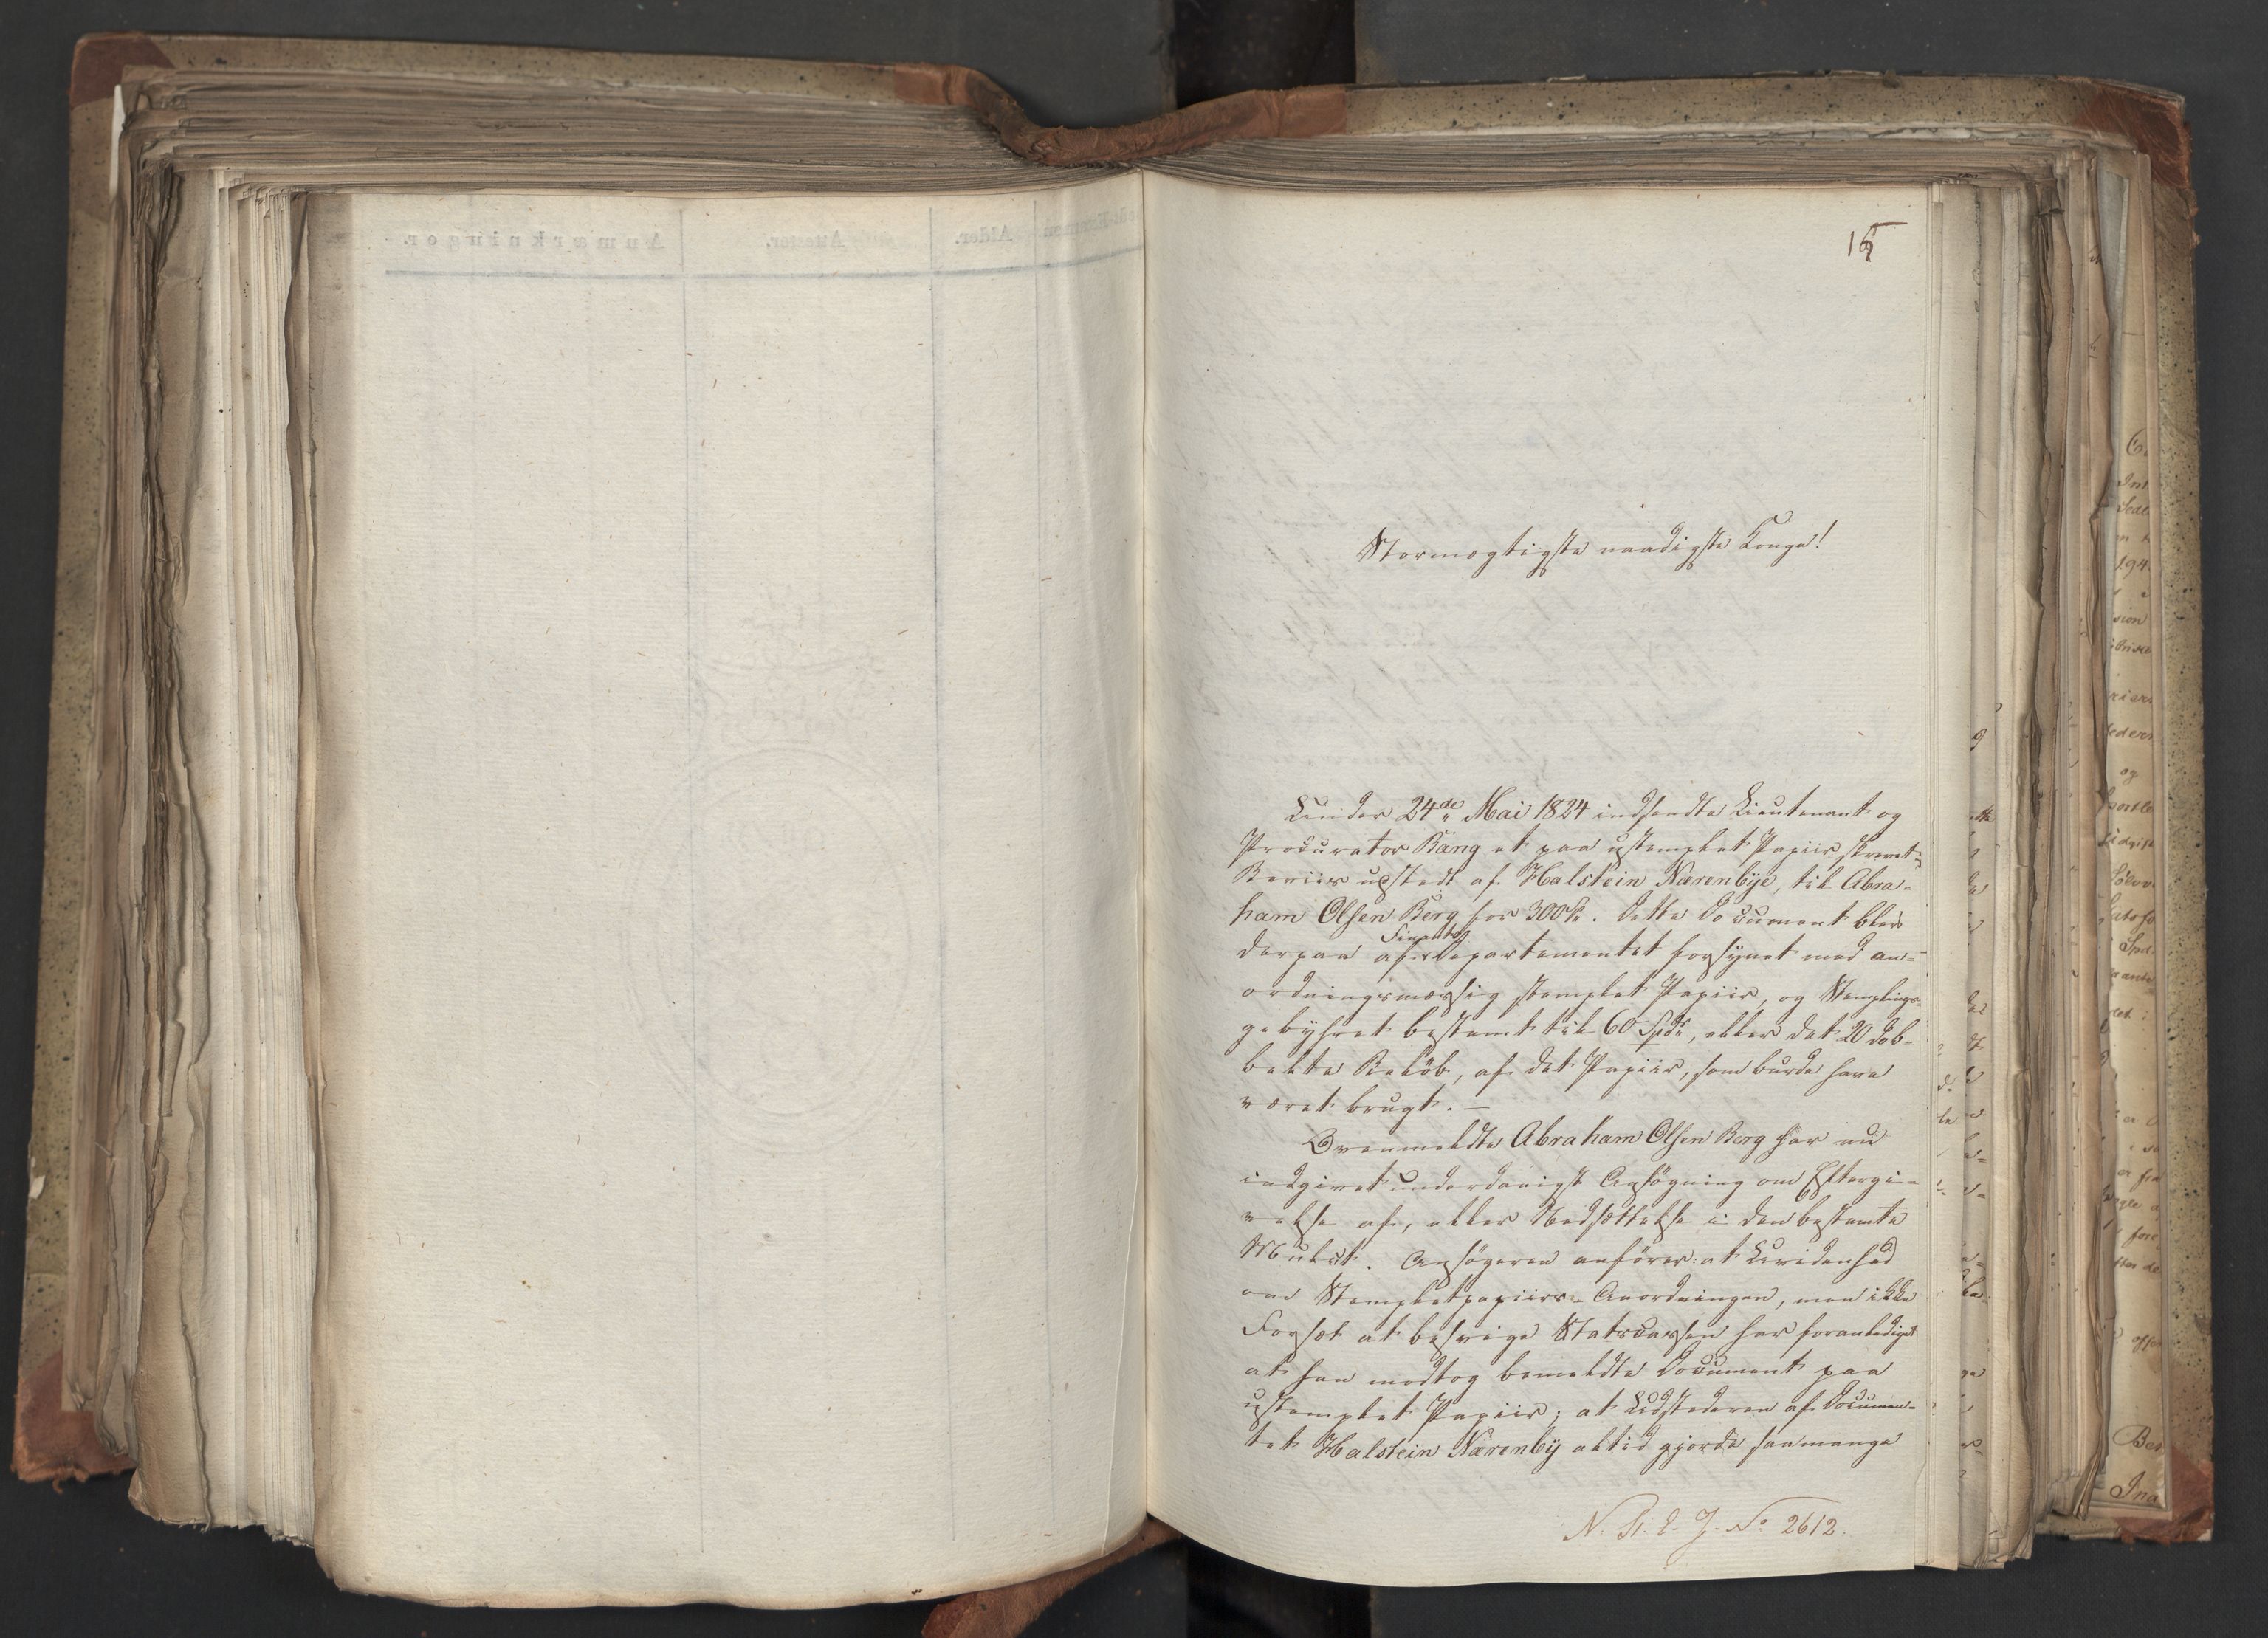 15
Stormægtigste naadigste Konge!
Under 24de Mai 1824 indsendte Lieutenant og
Procurator Bang et paa ustemplet Papiir skrevet
Beviis udstedt af Halstein Nærenbye, til Abra-
ham Olsen Berg for 300 . Dette Document blev
derpaa af Finants Departementet forsynet med an-
ordningsmæssig stemplet Papiir, og Stemplings-
gebyhret bestemt til 60 Spdr, eller det 20 dob-
belte Beløb, af det Papiir, som burde have
været brugt. —
Ovenmeldte Abraham Olsen Berg har nu
indgivet underdanigst Ansøgning om Eftergi-
velse af, eller Nedsættelse i den bestemte
Mulct. Ansøgeren anfører: at Uvidenhed
om Stempletpapiirs-Anordningen, men ikke
Forsæt at besvige Statscassen har foranlediget
at han modtog bemeldte Document paa
ustemplet Papiir; at Udstederen af Documen-
tet Halstein Nærenby altid gjorde saa mange
N. St. E. J. No 2612.